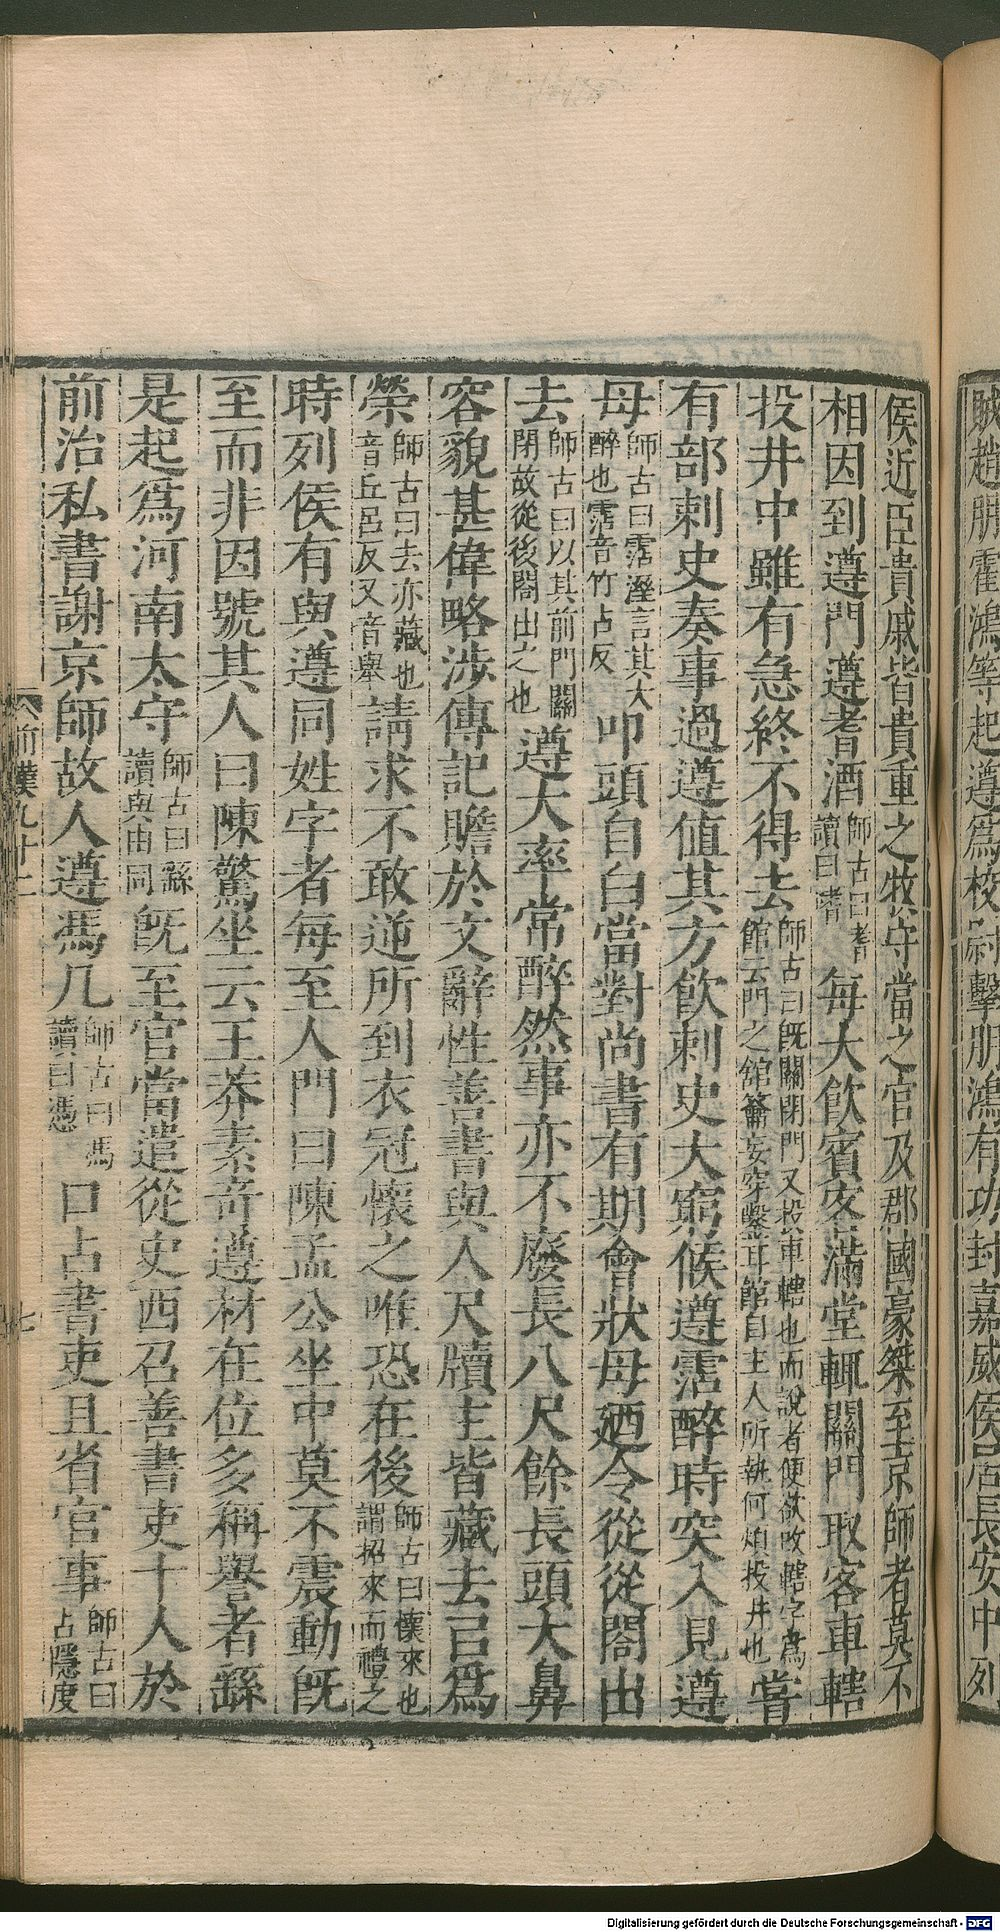 賊趙朋霍鴻等起遵爲校尉擊朋鴻有功封嘉威侯居長安中列
侯近臣貴戚皆貴重之牧守當之官及郡國豪桀至京師者莫不
相因到遵門遵耆酒師古曰耆讀曰嗜每大飲賓客滿堂輒關門取客車轄
投井中雖有急終不得去師古曰既關閉門又投車轄也而說者便欲改轄字爲館云門之館籥妄穿鑿耳館自主人所執何煩投井也嘗
有部刺史奏事過遵值其方飲刺史大窮候遵霑醉時突入見遵
母師古曰霑溼言其大醉也霑音竹占反叩頭自白當對尚書有期會狀母廼令從後閤出
去師古曰以其前門關閉故從後閤出之也遵大率常醉然事亦不廢長八尺餘長頭大鼻
容貌甚偉略涉傳記贍於文辭性善書與人尺牘主皆藏去以爲
榮師古曰去亦藏也音丘呂反又音舉請求不敢逆所到衣冠懷之唯恐在後師古曰懷來也謂招來而禮之
時列侯有與遵同姓字者每至人門曰陳孟公坐中莫不震動既
至而非因號其人曰陳驚坐云王莽素奇遵材在位多稱譽者繇
是起爲河南太守師古曰繇讀與由同既至官當遣從史西召善書吏十人於
前治私書謝京師故人遵馮几師古曰馮讀曰憑口占書吏且省官事師古曰占隱度
前漢九十二
七
Digitalisierung gefördert durch die Deutsche Forschungsgemeinschaft - DFG